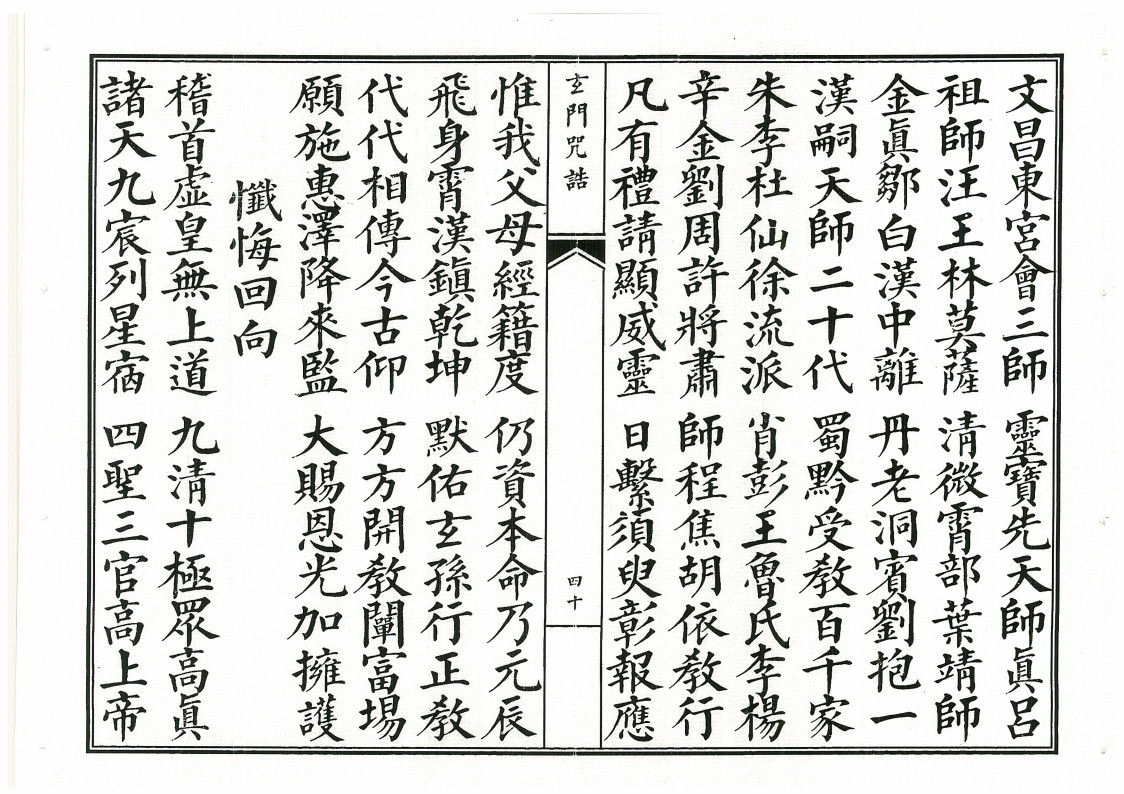 文昌東宮會三師　靈寶先天師眞呂
祖師汪王林莫薩　清微霄部葉靖師
金眞鄒白漢中離　丹老洞賓劉抱一
漢嗣天師二十代　蜀黔受教百千家
朱李杜仙徐流派　肖彭王魯氏李楊
辛金劉周許將肅　師程焦胡依教行
凡有禮請顯威靈　日繫須臾彰報應
玄門咒誥
四十
惟我父母經籍度　仍資本命乃元辰
飛身霄漢鎮乾坤　默佑玄孫行正教
代代相傳今古仰　方方開教闡富場
願施惠澤降來監　大賜恩光加擁護
懺悔回向
稽首虛皇無上道　九清十極眾高眞
諸天九宸列星宿　四聖三官高上帝